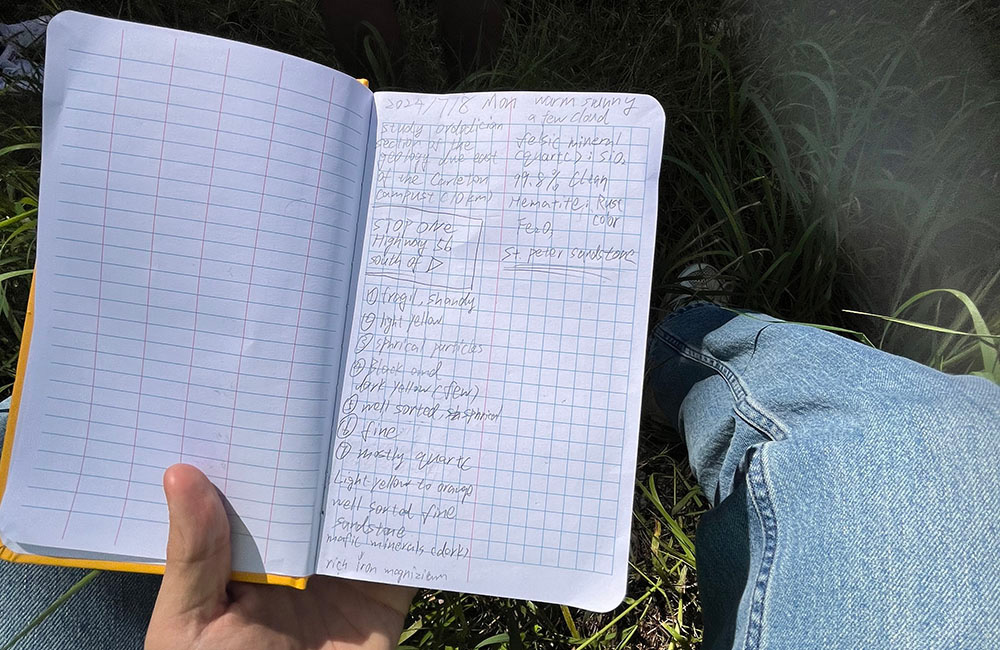 2024/7/8 Mon warm sunny
a few cloud
study ordotician
section of the
geology due east
of the Carleton
campust (10 km)
STOP ONE
Highway 56
south of D
① fragil, shandy
② light yellow
③ sphrical particles
④ Black and
dark yellow (few)
⑤ well sorted, sphrical
⑥ fine
⑦ mostly quartz
Light yellow to orange
well sorted fine
sandstone
mafic minerals (dark)
rich iron
felsic mineral
(quartz): SiO₂
99.8% Clean
Hematite, Rust
color
Fe₂O₃
St. peter sandstone